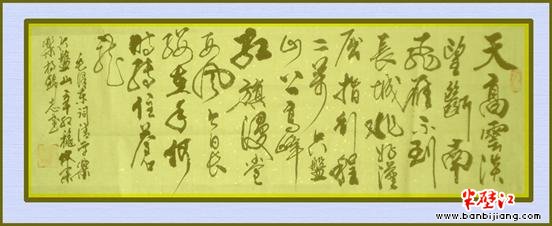 天高雲淡
望斷南
飛雁不到
長城非好漢
屈指行程
二萬六盤
山上高峰
紅旗漫卷
西風今日長
纓在手何
時縛住蒼
龍
毛澤東詞清平樂
六盤山
半壁江
www.banbijiang.com